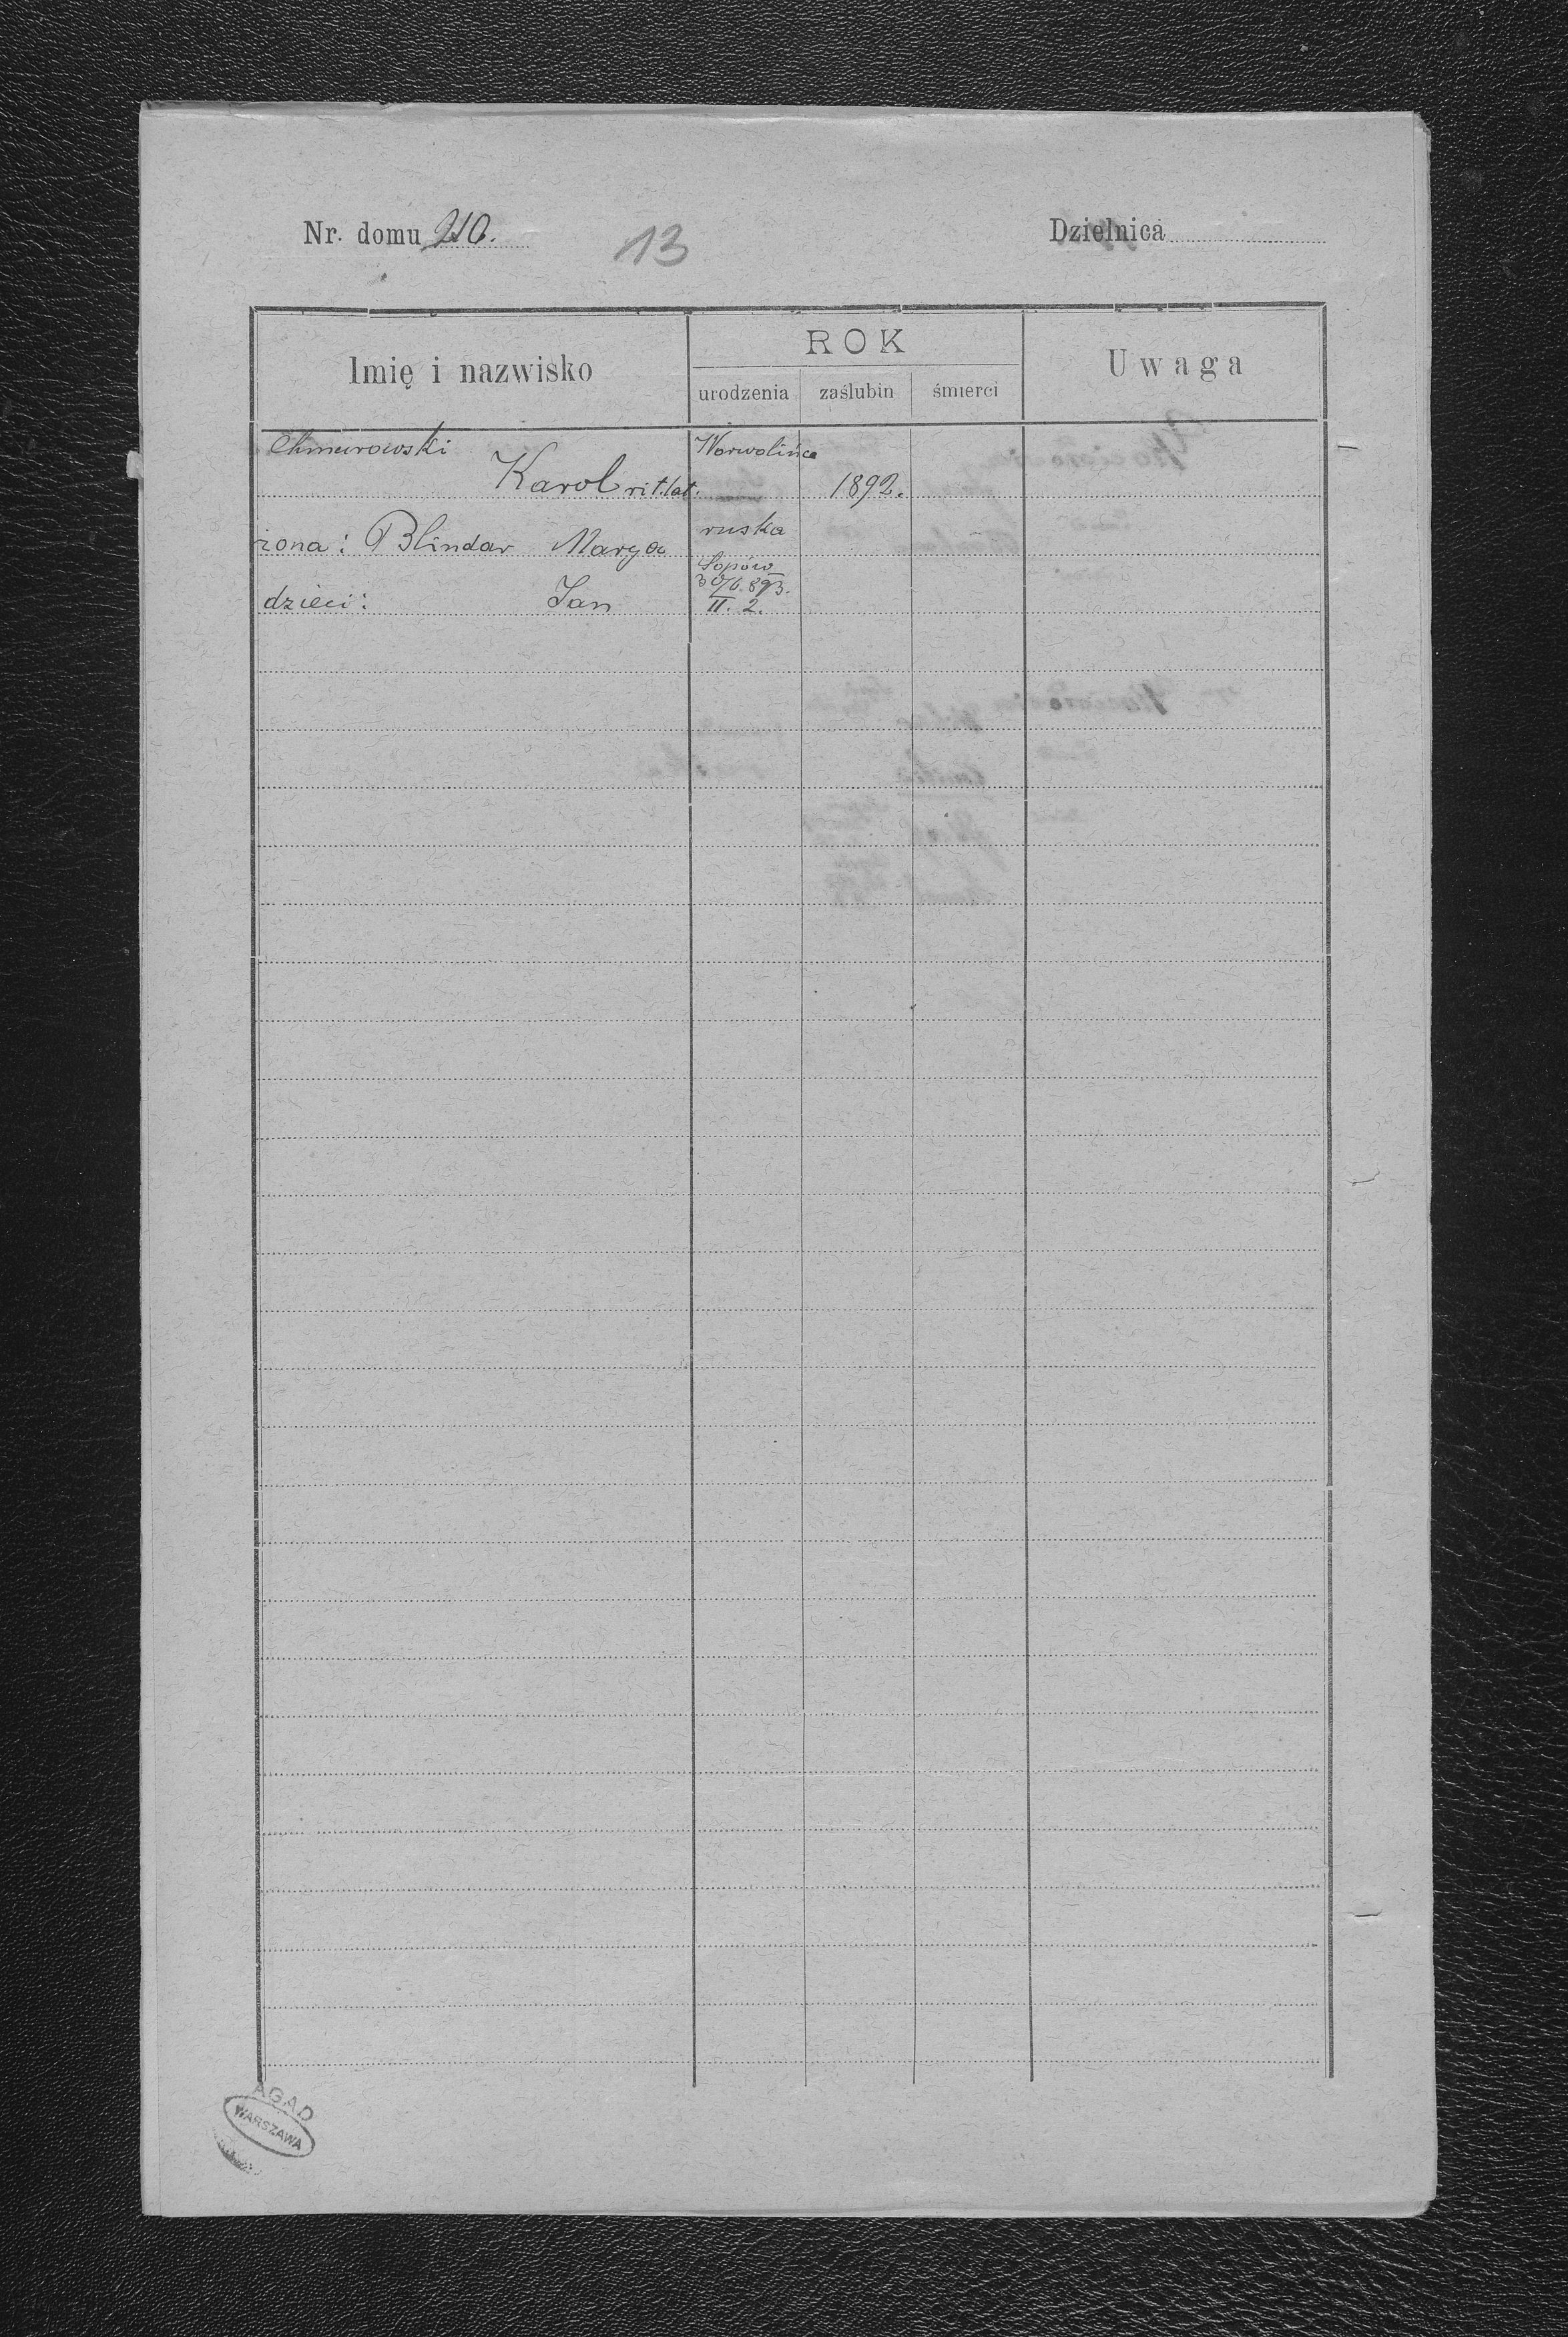 Nr. domu 210.
13
Dzielnica
Imię i nazwisko
ROK
urodzenia
zaślubin
śmierci
Uwaga
Chmurowski
Worwolińce
Karol rit. lat.
1892.
żona: Blindar Marya
ruska
Sopów
30/6. 893.
dzieci: Jan
II. 2.
AGAD
WARSZAWA